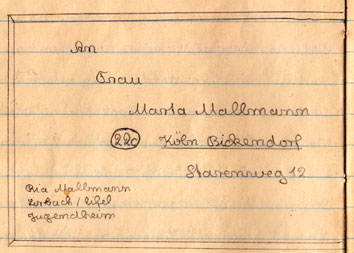 An
Frau
Marta Mallmann
22c Köln Bickendorf
Starenweg 12
Ria Mallmann
Urbach / Eifel
Jugendheim